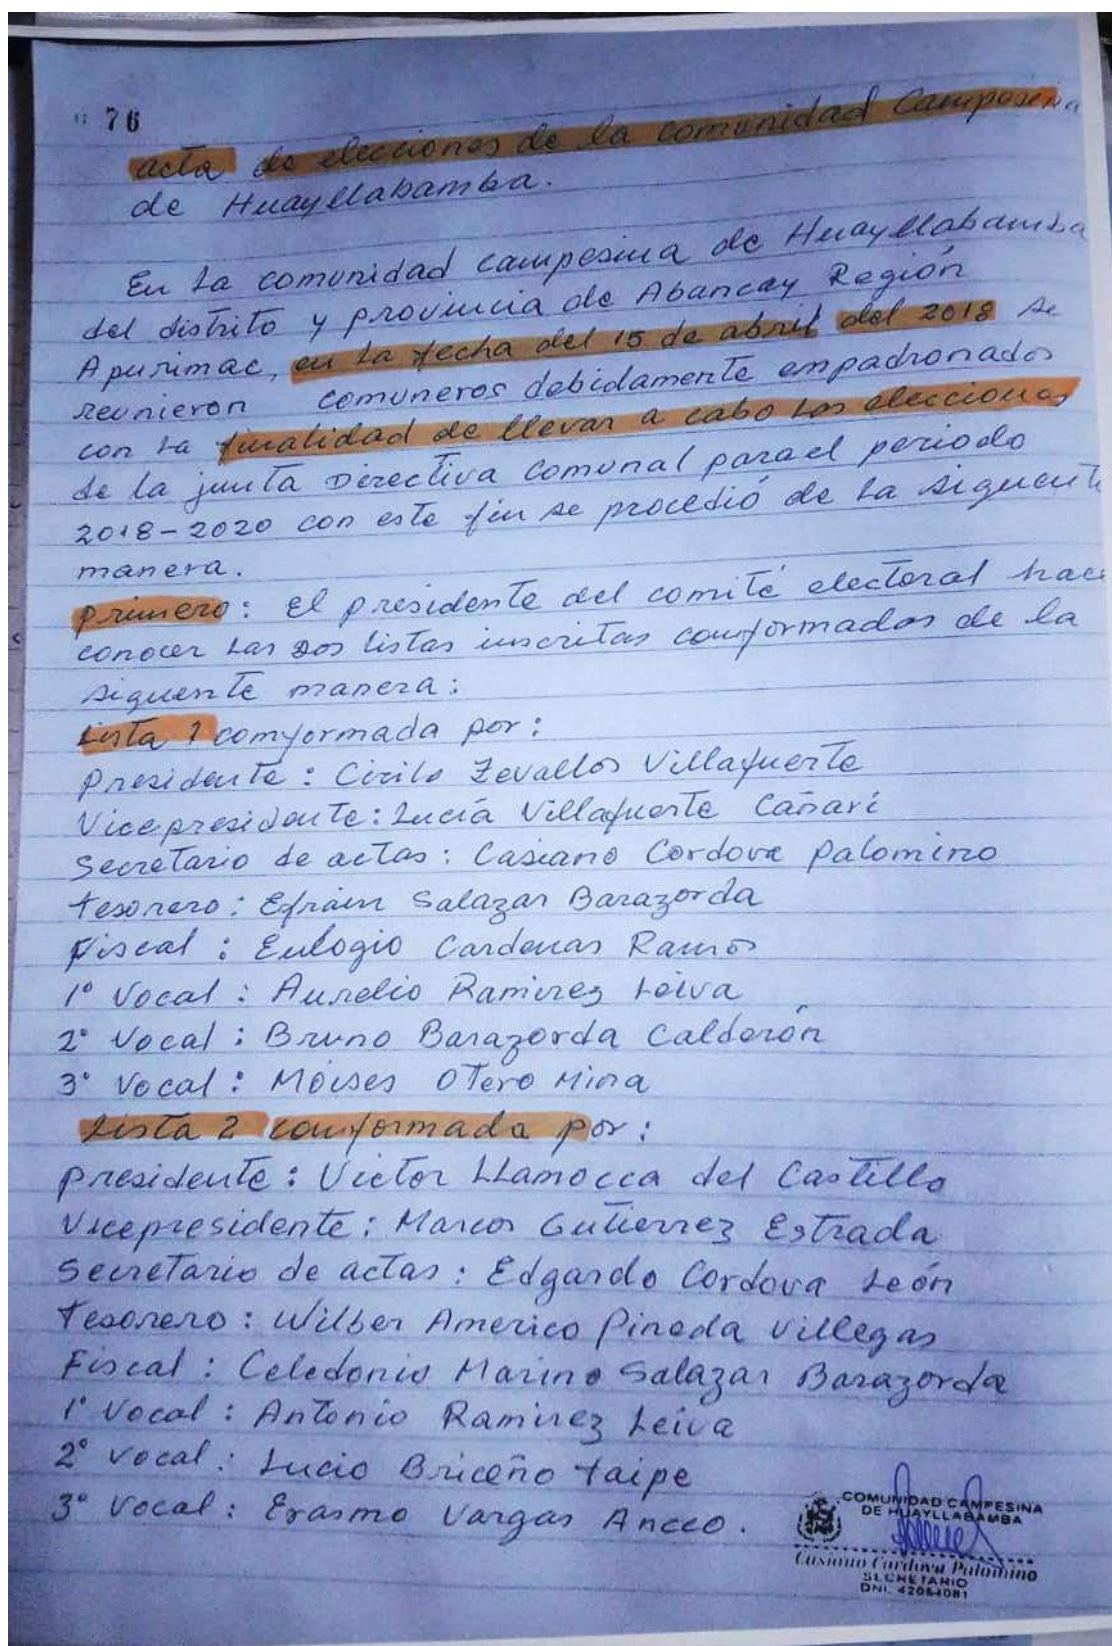 76
acta de elecciones de la comunidad Campesina
de Huayllabamba.
En la comunidad campesina de Huayllabamba
del distrito y provincia de Abancay Región
Apurimac, en la fecha del 15 de abril del 2018 se
reunieron comuneros debidamente empadronados
con la finalidad de llevar a cabo las elecciones
de la junta Directiva comunal para el periodo
2018-2020 con este fin se procedió de la siguente
manera.
primero: El presidente del comité electoral hace
conocer las dos listas inscritas conformados de la
siguente manera:
Lista 1 comformada por:
Presidente: Cirilo Zevallos Villafuerte
Vicepresidente: Lucía Villafuerte Cañari
Secretario de actas: Casiano Cordova Palomino
tesorero: Efrain Salazar Barazorda
Fiscal: Eulogio Cardenas Ramos
1° Vocal: Aurelio Ramirez Leiva
2° Vocal: Bruno Barazorda Calderón
3° Vocal: Moises Otero Mina
Lista 2 comformada por:
presidente: Victor Llamocca del Castillo
Vicepresidente: Marcos Gutierrez Estrada
Secretario de actas: Edgardo Cordova León
Tesorero: Wilber Americo Pineda Villegas
Fiscal: Celedonio Marino Salazar Barazorda
1° Vocal: Antonio Ramirez Leiva
2° Vocal: Lucio Briceño taipe
3° Vocal: Erasmo Vargas Ancco.
COMUNIDAD CAMPESINA
DE HUAYLLABAMBA
Casiano Cordova Palomino
SECRETARIO
DNI. 42064081